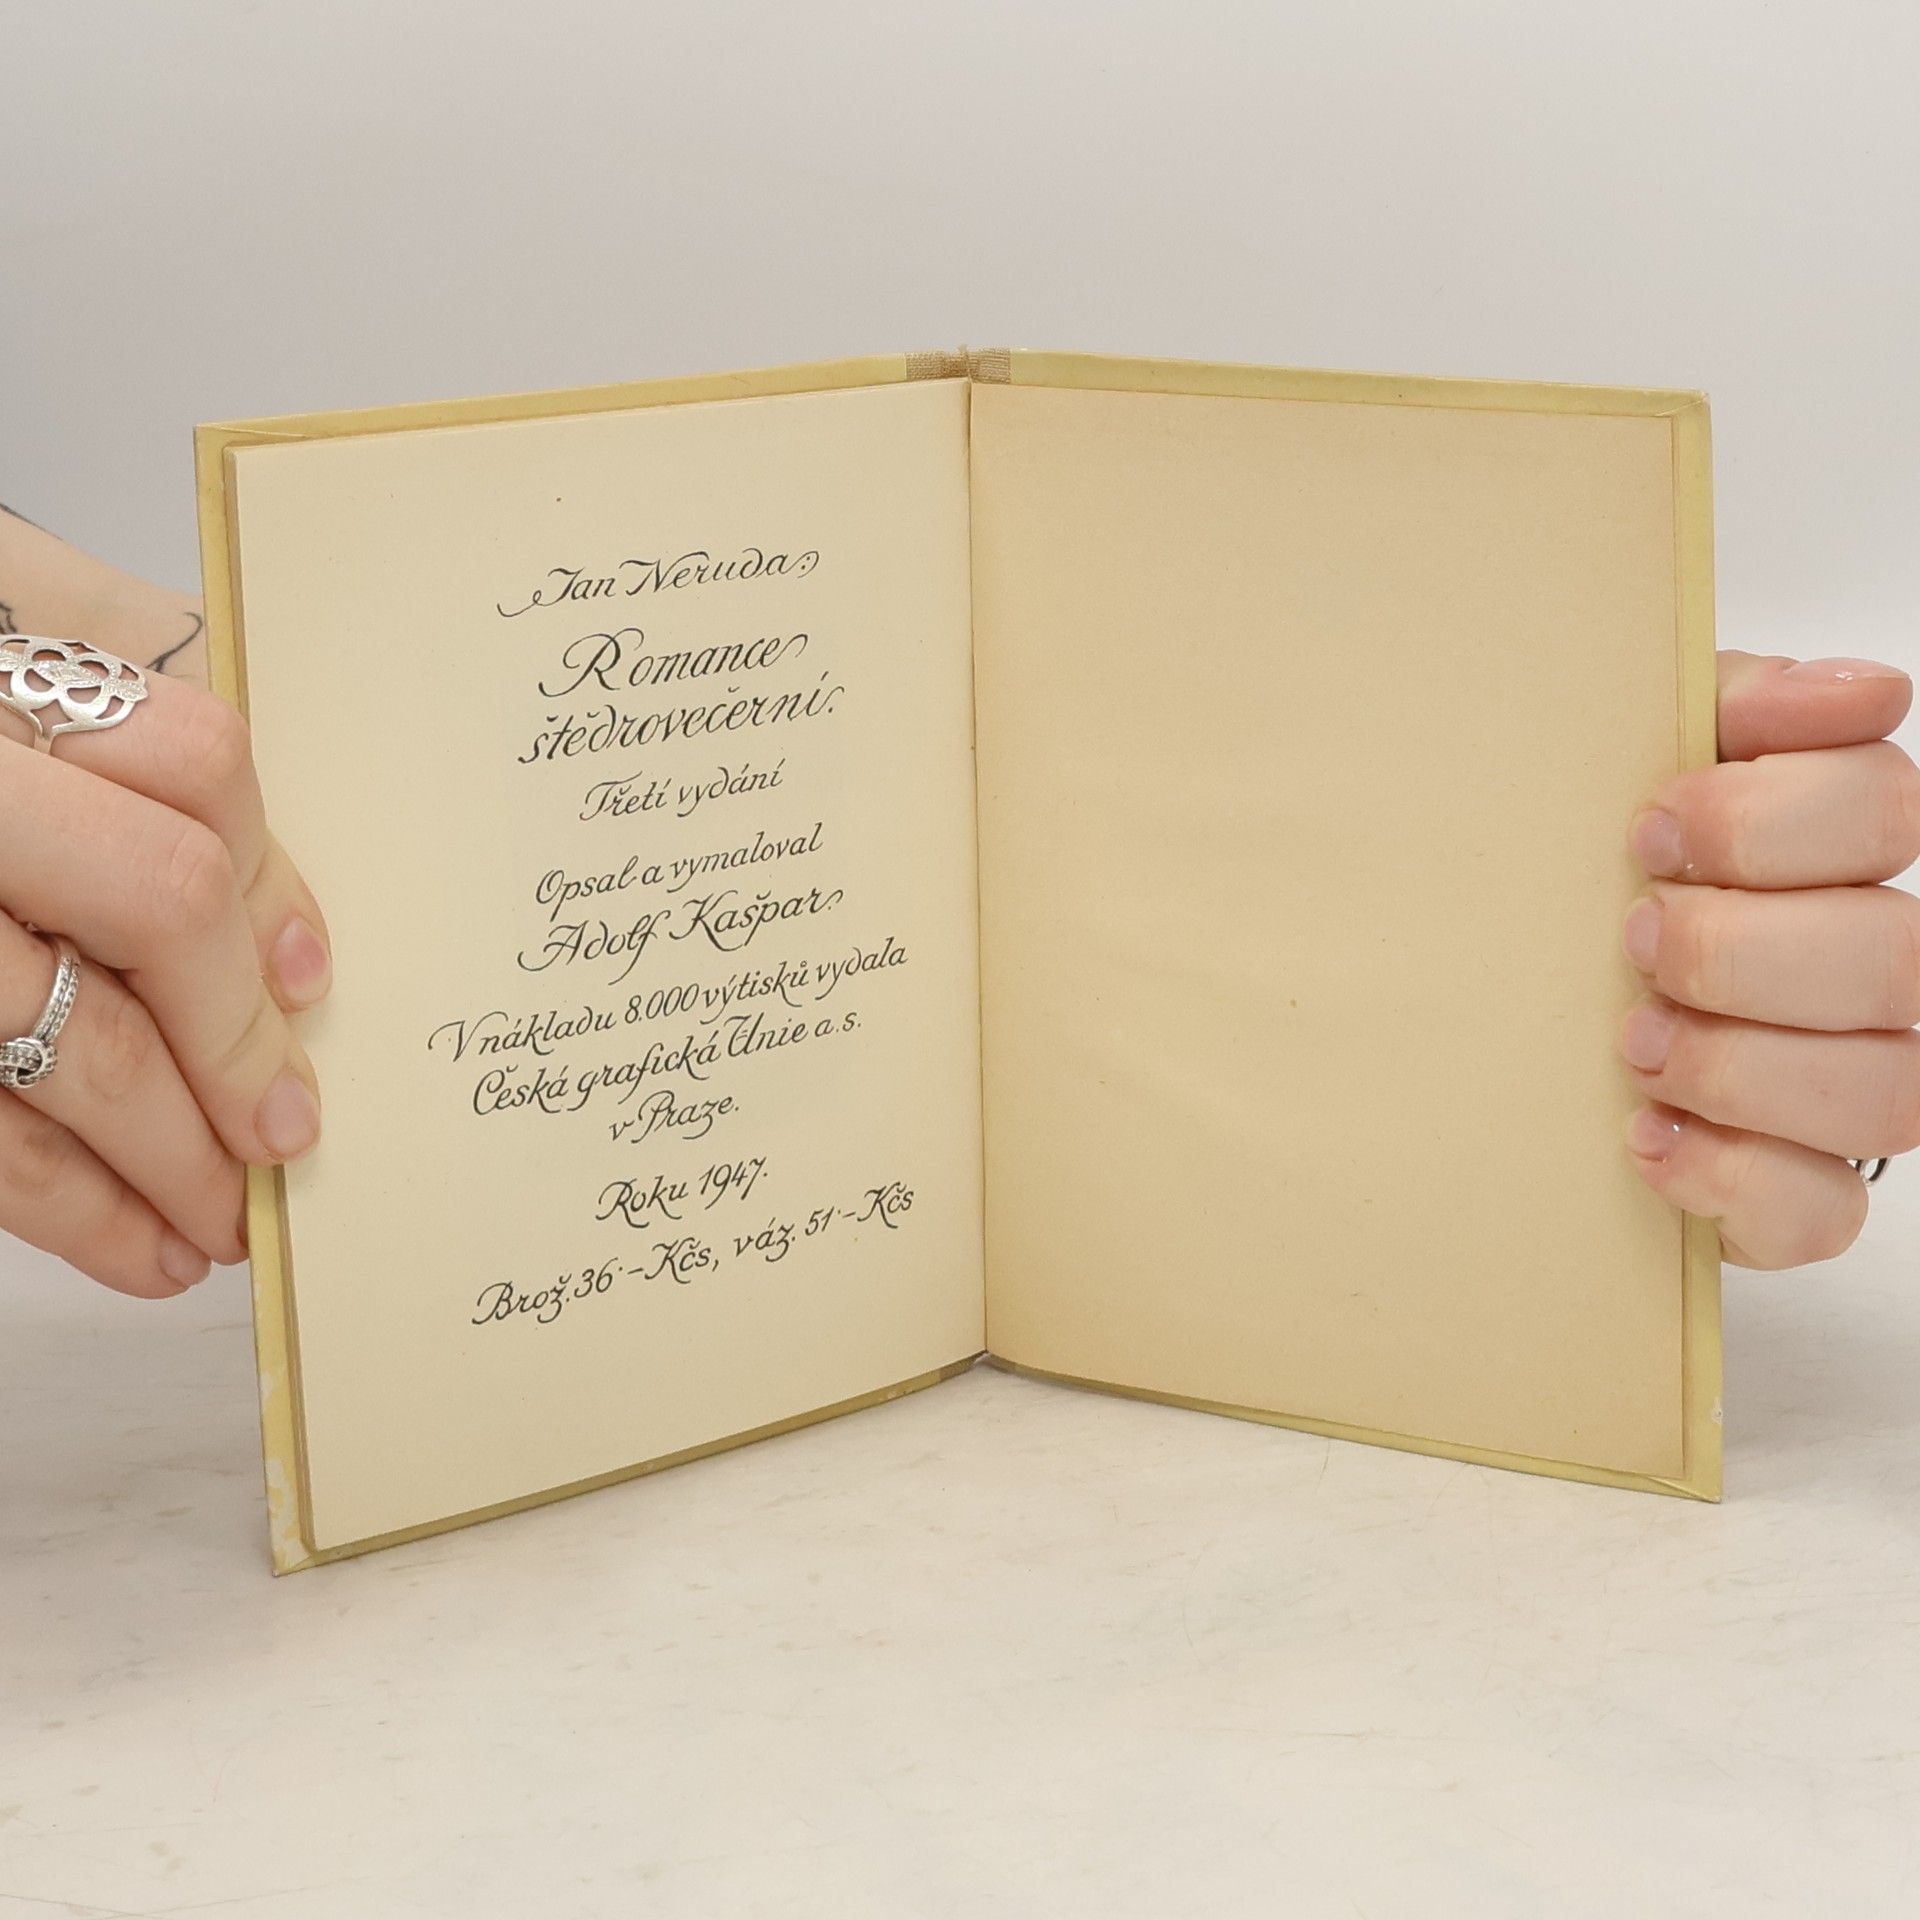 Jan Neruda:
Romance
štědrovečerní.
Třetí vydání
Opsal a vymaloval
Adolf Kašpar.
V nákladu 8.000 výtisků vydala
Česká grafická Unie a.s.
v Praze.
Roku 1947.
Brož. 36·–Kčs, váz. 51·–Kčs